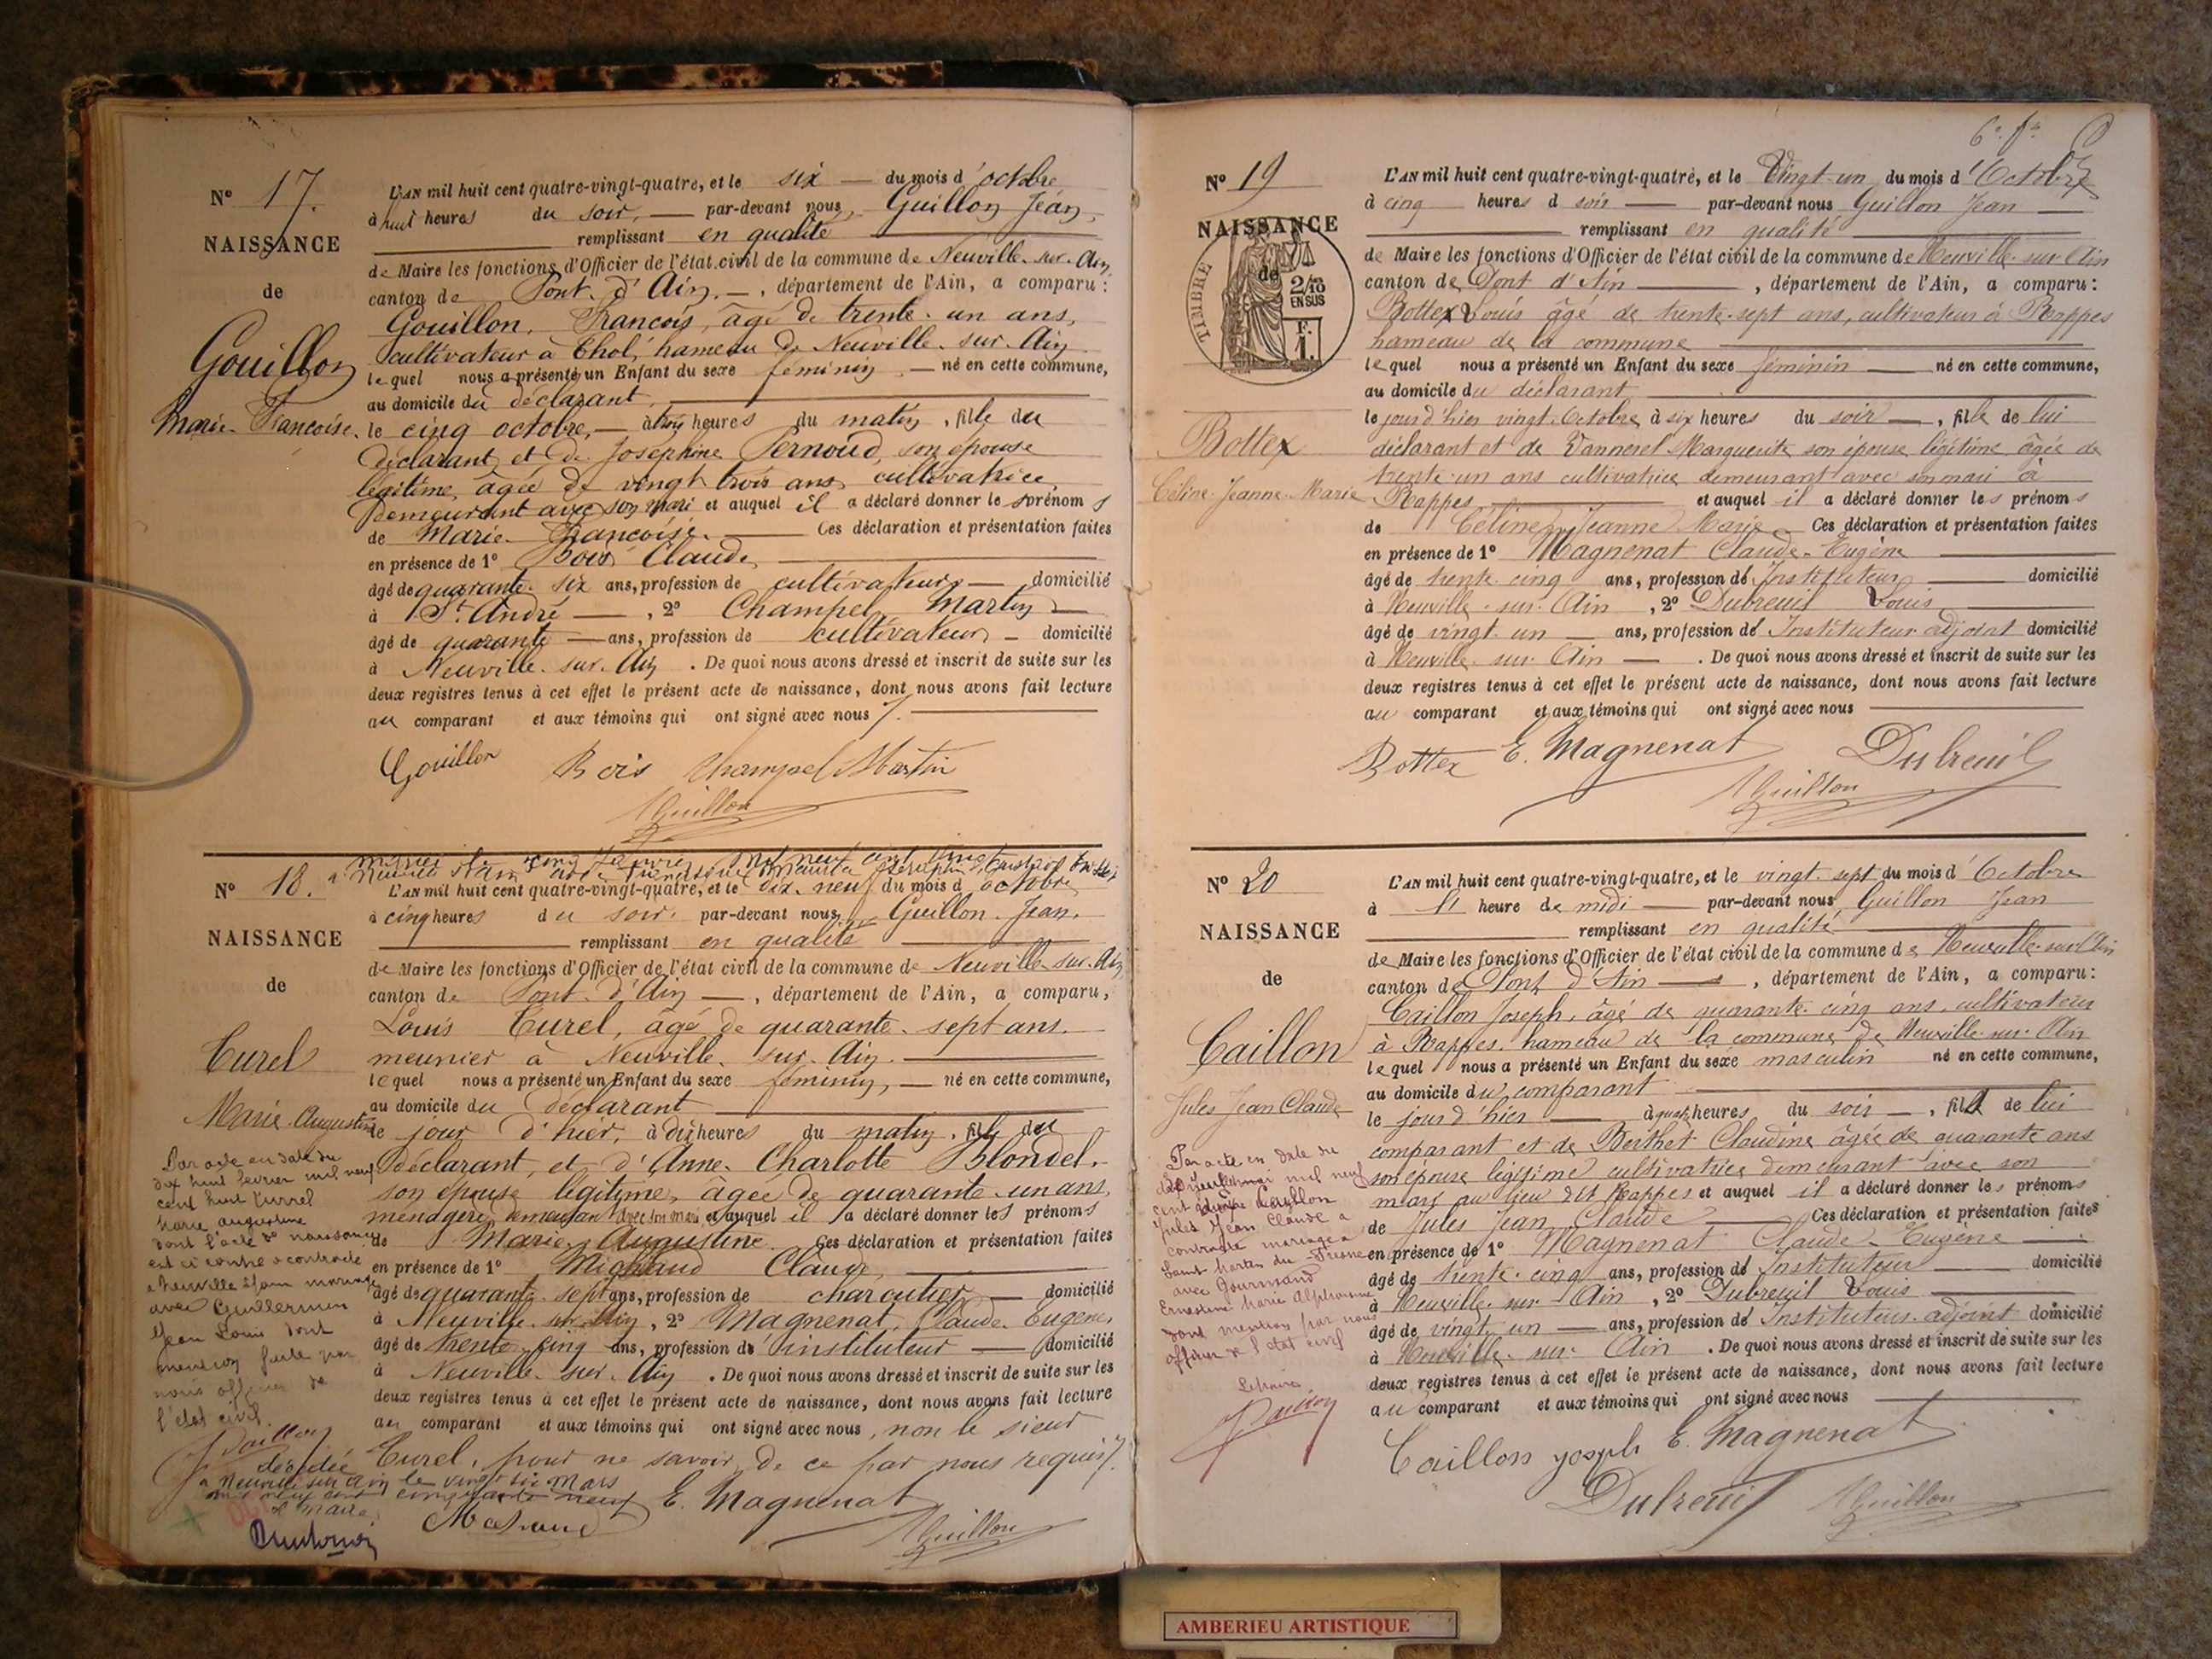 N° 17.
NAISSANCE
de
Gouillon
Marie-Françoise.
L'AN mil huit cent quatre-vingt-quatre, et le six — du mois d'octobre
à huit heures du soir, — par-devant nous, Guillon Jean,
remplissant en qualité
de Maire les fonctions d'Officier de l'état civil de la commune de Neuville-sur-Ain,
canton de Pont-d'Ain, —, département de l'Ain, a comparu:
Gouillon, François, âgé de trente-un ans,
cultivateur à Thol, hameau de Neuville-sur-Ain
lequel nous a présenté un Enfant du sexe féminin, — né en cette commune,
au domicile du déclarant,
le cinq octobre, — à trois heures du matin, fille du
déclarant et de Joséphine Pernoud, son épouse
légitime, âgée de vingt trois ans, cultivatrice,
demeurant avec son mari et auquel il a déclaré donner les prénoms
de Marie-Françoise. — Ces déclaration et présentation faites
en présence de 1° Bois Claude,
âgé de quarante-six ans, profession de cultivateur, — domicilié
à St. André —, 2° Champel Martin —
âgé de quarante — ans, profession de cultivateur, — domicilié
à Neuville-sur-Ain. De quoi nous avons dressé et inscrit de suite sur les
deux registres tenus à cet effet le présent acte de naissance, dont nous avons fait lecture
au comparant et aux témoins qui ont signé avec nous.
Gouillon Bois Champel Martin
JGuillon
N° 18.
NAISSANCE
de
Curel
Marie-Augustine
L'AN mil huit cent quatre-vingt-quatre, et le dix-neuf du mois d'octobre
à cinq heures du soir, par-devant nous, Guillon Jean,
remplissant en qualité
de Maire les fonctions d'Officier de l'état civil de la commune de Neuville-sur-Ain
canton de Pont-d'Ain —, département de l'Ain, a comparu,
Louis Curel, âgé de quarante-sept ans,
meunier à Neuville-sur-Ain.
lequel nous a présenté un Enfant du sexe féminin, — né en cette commune,
au domicile du déclarant
le jour d'hier, à dix heures du matin, fille du
déclarant, et d'Anne-Charlotte Blondel,
son épouse légitime, âgée de quarante-un ans,
ménagère, demeurant avec son mari et auquel il a déclaré donner les prénoms
de Marie-Augustine. Ces déclaration et présentation faites
en présence de 1° Claude,
âgé de quarante-sept ans, profession de charcutier — domicilié
à Neuville-sur-Ain, 2° Magnenat, Claude-Eugène,
âgé de trente-cinq ans, profession d'instituteur — domicilié
à Neuville-sur-Ain. De quoi nous avons dressé et inscrit de suite sur les
deux registres tenus à cet effet le présent acte de naissance, dont nous avons fait lecture
au comparant et aux témoins qui ont signé avec nous, non le sieur
Curel, pour ne savoir, de ce par nous requis.
E. Magnenat
JGuillon
Par acte en date du
dix huit fevrier mil neuf
cent huit Currel
Marie augustine
dont l'acte de naissance
est ci contre a contracté
a Neuville s/ain mariage
avec Guillermin
Jean Louis dont
mention faite par
nous officier de
l'état civil.
décédée
a Neuville sur Ain le vingt six Mars
mil neuf cent cinquante neuf
le maire
N° 19
NAISSANCE
de
TIMBRE
2/10
EN SUS
F.
1.
Bottex
Céline-Jeanne-Marie
L'AN mil huit cent quatre-vingt-quatre, et le Vingt-un du mois d'Octobre
à cinq heures d soir — par-devant nous Guillon Jean —
remplissant en qualité
de Maire les fonctions d'Officier de l'état civil de la commune de Neuville-sur-Ain
canton de Pont d'Ain —, département de l'Ain, a comparu:
Bottex Louis âgé de trente-sept ans, cultivateur à Rappes
hameau de la commune
lequel nous a présenté un Enfant du sexe féminin — né en cette commune,
au domicile du déclarant
le jour d'hier vingt-Octobre à six heures du soir —, fille de lui
déclarant et de Vanneret Marguerite son épouse légitime âgée de
trente-un ans cultivatrice demeurant avec son mari à
Rappes — et auquel il a déclaré donner les prénoms
de Céline Jeanne Marie — Ces déclaration et présentation faites
en présence de 1° Magnenat Claude-Eugène
âgé de trente-cinq ans, profession d'Instituteur — domicilié
à Neuville-sur-Ain, 2° Dubreuil Louis
âgé de vingt-un — ans, profession d'Instituteur-adjoint domicilié
à Neuville-sur-Ain —. De quoi nous avons dressé et inscrit de suite sur les
deux registres tenus à cet effet le présent acte de naissance, dont nous avons fait lecture
au comparant et aux témoins qui ont signé avec nous
Bottex E. Magnenat Dubreuil
JGuillon
N° 20
NAISSANCE
de
Caillon
Jules Jean Claude
L'AN mil huit cent quatre-vingt-quatre, et le vingt-sept du mois d'Octobre
à heure de midi — par-devant nous Guillon Jean
remplissant en qualité
de Maire les fonctions d'Officier de l'état civil de la commune de Neuville-sur-Ain
canton de Pont d'Ain —, département de l'Ain, a comparu:
Caillon Joseph, âgé de quarante-cinq ans, cultivateur
à Rappes, hameau de la commune de Neuville-sur-Ain
lequel nous a présenté un Enfant du sexe masculin né en cette commune,
au domicile du comparant
le jour d'hier — à quatre heures du soir —, fils de lui
comparant et de Berthet Claudine âgée de quarante ans
son épouse légitime cultivatrice demeurant avec son
mari au lieu dit Rappes et auquel il a déclaré donner les prénoms
de Jules Jean Claude — Ces déclaration et présentation faites
en présence de 1° Magnenat Claude-Eugène —
âgé de trente-cinq ans, profession d'Instituteur — domicilié
à Neuville-sur-Ain, 2° Dubreuil Louis
âgé de vingt-un — ans, profession d'Instituteur-adjoint domicilié
à Neuville-sur-Ain. De quoi nous avons dressé et inscrit de suite sur les
deux registres tenus à cet effet le présent acte de naissance, dont nous avons fait lecture
au comparant et aux témoins qui ont signé avec nous
Caillon Joseph E. Magnenat
Dubreuil JGuillon
Par acte en date du
mil neuf
cent
Jules Jean Claude a
contracté mariage a
Saint Martin du Fresne
avec Gourmand
Ernestine Marie Alphonsine
dont mention par nous
officier de l'état civil
Le Maire
AMBERIEU ARTISTIQUE